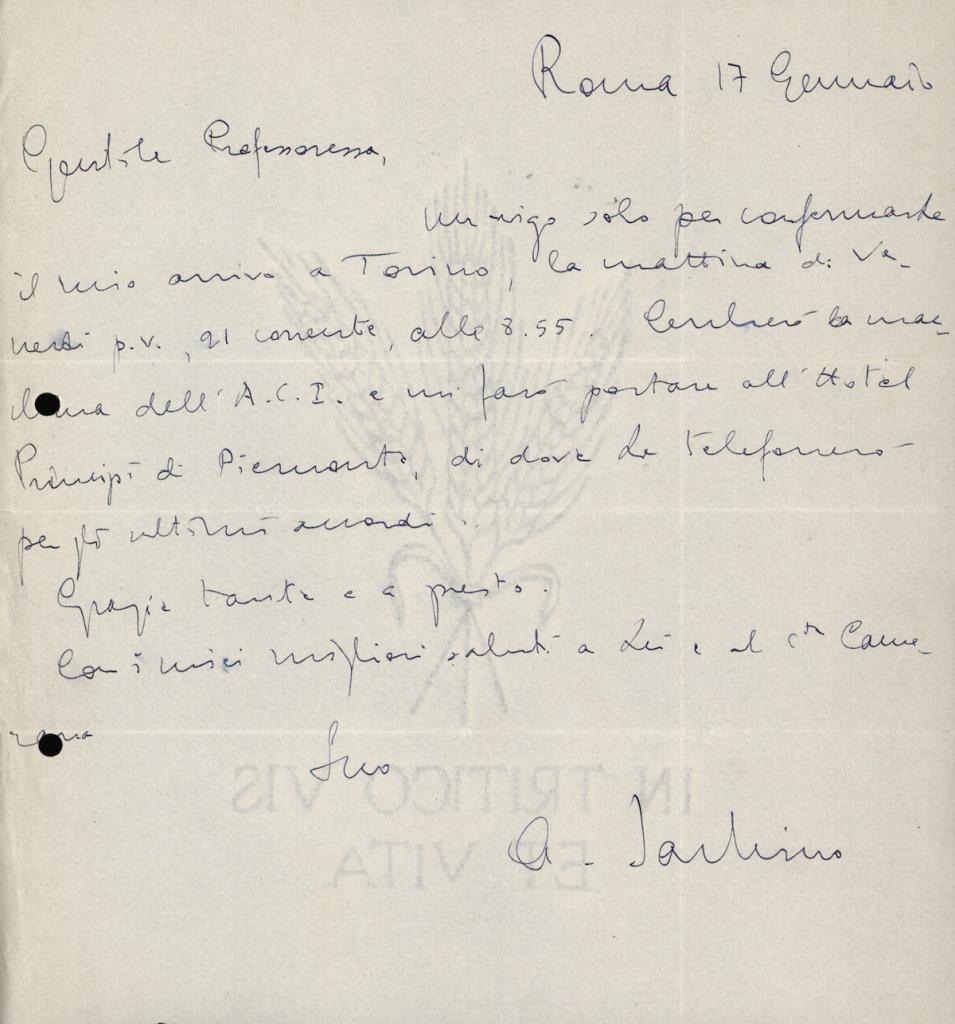 Roma 17 Gennaio
Gentile Professoressa,
un rigo solo per confermarle
il mio arrivo a Torino, la mattina di Ve-
nerdì p.v., 21 corrente, alle 8.55. Cercherò la mac-
china dell'A.C.I. e mi farò portare all'Hotel
Principi di Piemonte, di dove Le telefonerò
per gli ultimi accordi.
Grazie tante e a presto.
Con i miei migliori saluti a Lei e al Came-
rana
Suo
A.
IN TRITICO VIS
ET VITA